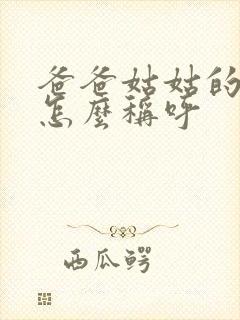 爸爸姑姑的
怎麼稱呼
西瓜鳄